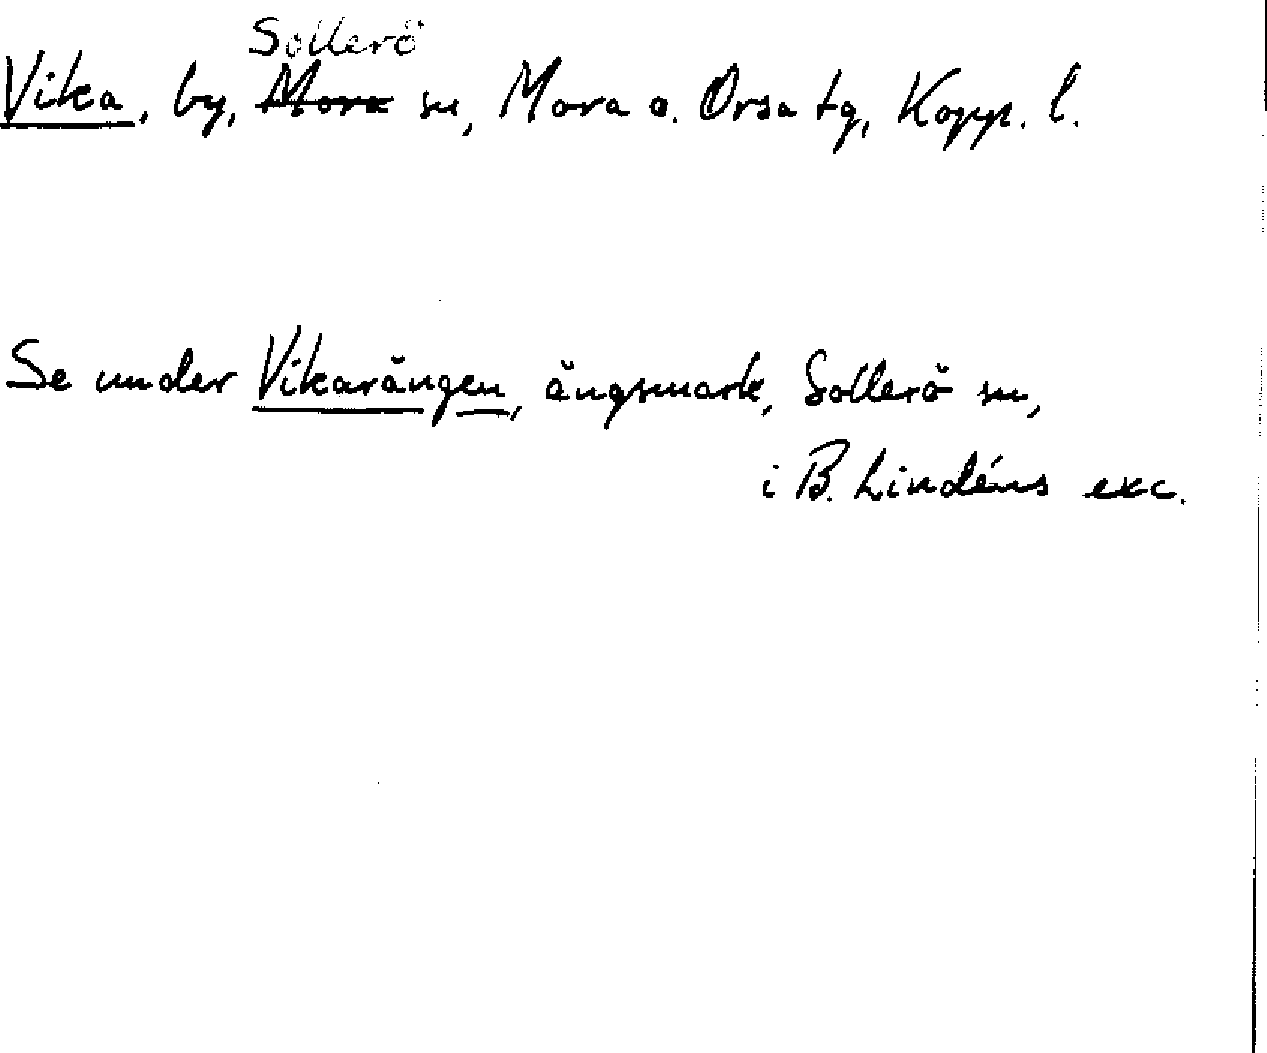 Sollerö
Vika, by, Mora sn, Mora o. Orsa tg, Kopp. l.
Se under Vikarängen, ängsmark, Sollerö sn,
i B. Lindéns exc.